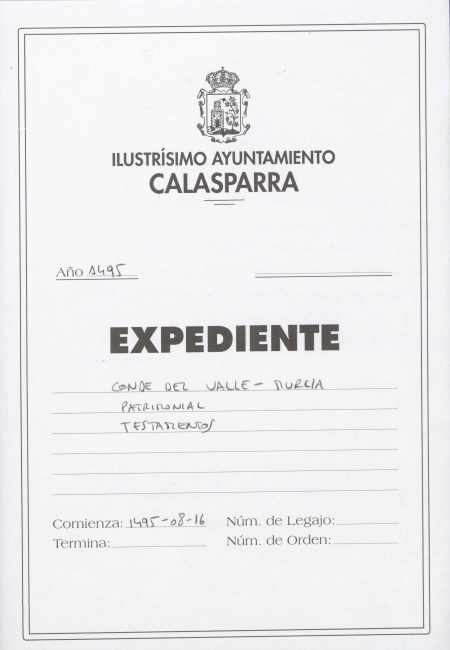 ILUSTRÍSIMO AYUNTAMIENTO
CALASPARRA
Año 1495
EXPEDIENTE
CONDE DEL VALLE - MURCIA
PATRIMONIAL
TESTAMENTOS
Comienza: 1495-08-16 Núm. de Legajo:
Termina: Núm. de Orden: